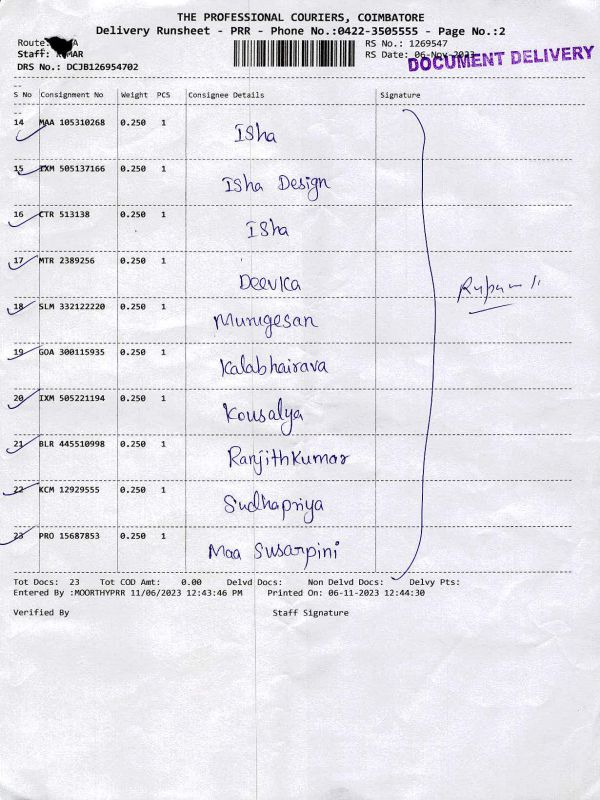 THE PROFESSIONAL COURIERS, COIMBATORE
Delivery Runsheet - PRR - Phone No.:0422-3505555 - Page No.:2
Route:
RS No.: 1269547
Staff:
RS Date: 06-Nov-2023
DOCUMENT DELIVERY
DRS No.: DCJB126954702
S No Consignment No Weight PCS Consignee Details Signature
14 MAA 105310268 0.250 1 Isha
15 IXM 505137166 0.250 1 Isha Design
16 CTR 513138 0.250 1 Isha
17 MTR 2389256 0.250 1 Deevica
18 SLM 332122220 0.250 1 Murugesan
19 GOA 300115935 0.250 1 Kalabhairava
20 IXM 505221194 0.250 1 Kousalya
21 BLR 445510998 0.250 1 RanjithKumar
22 KCM 12929555 0.250 1 Sudhapriya
23 PRO 15687853 0.250 1 Maa Susarpini
Tot Docs: 23 Tot COD Amt: 0.00 Delvd Docs: Non Delvd Docs: Delvy Pts:
Entered By :MOORTHYPRR 11/06/2023 12:43:46 PM Printed On: 06-11-2023 12:44:30
Verified By Staff Signature